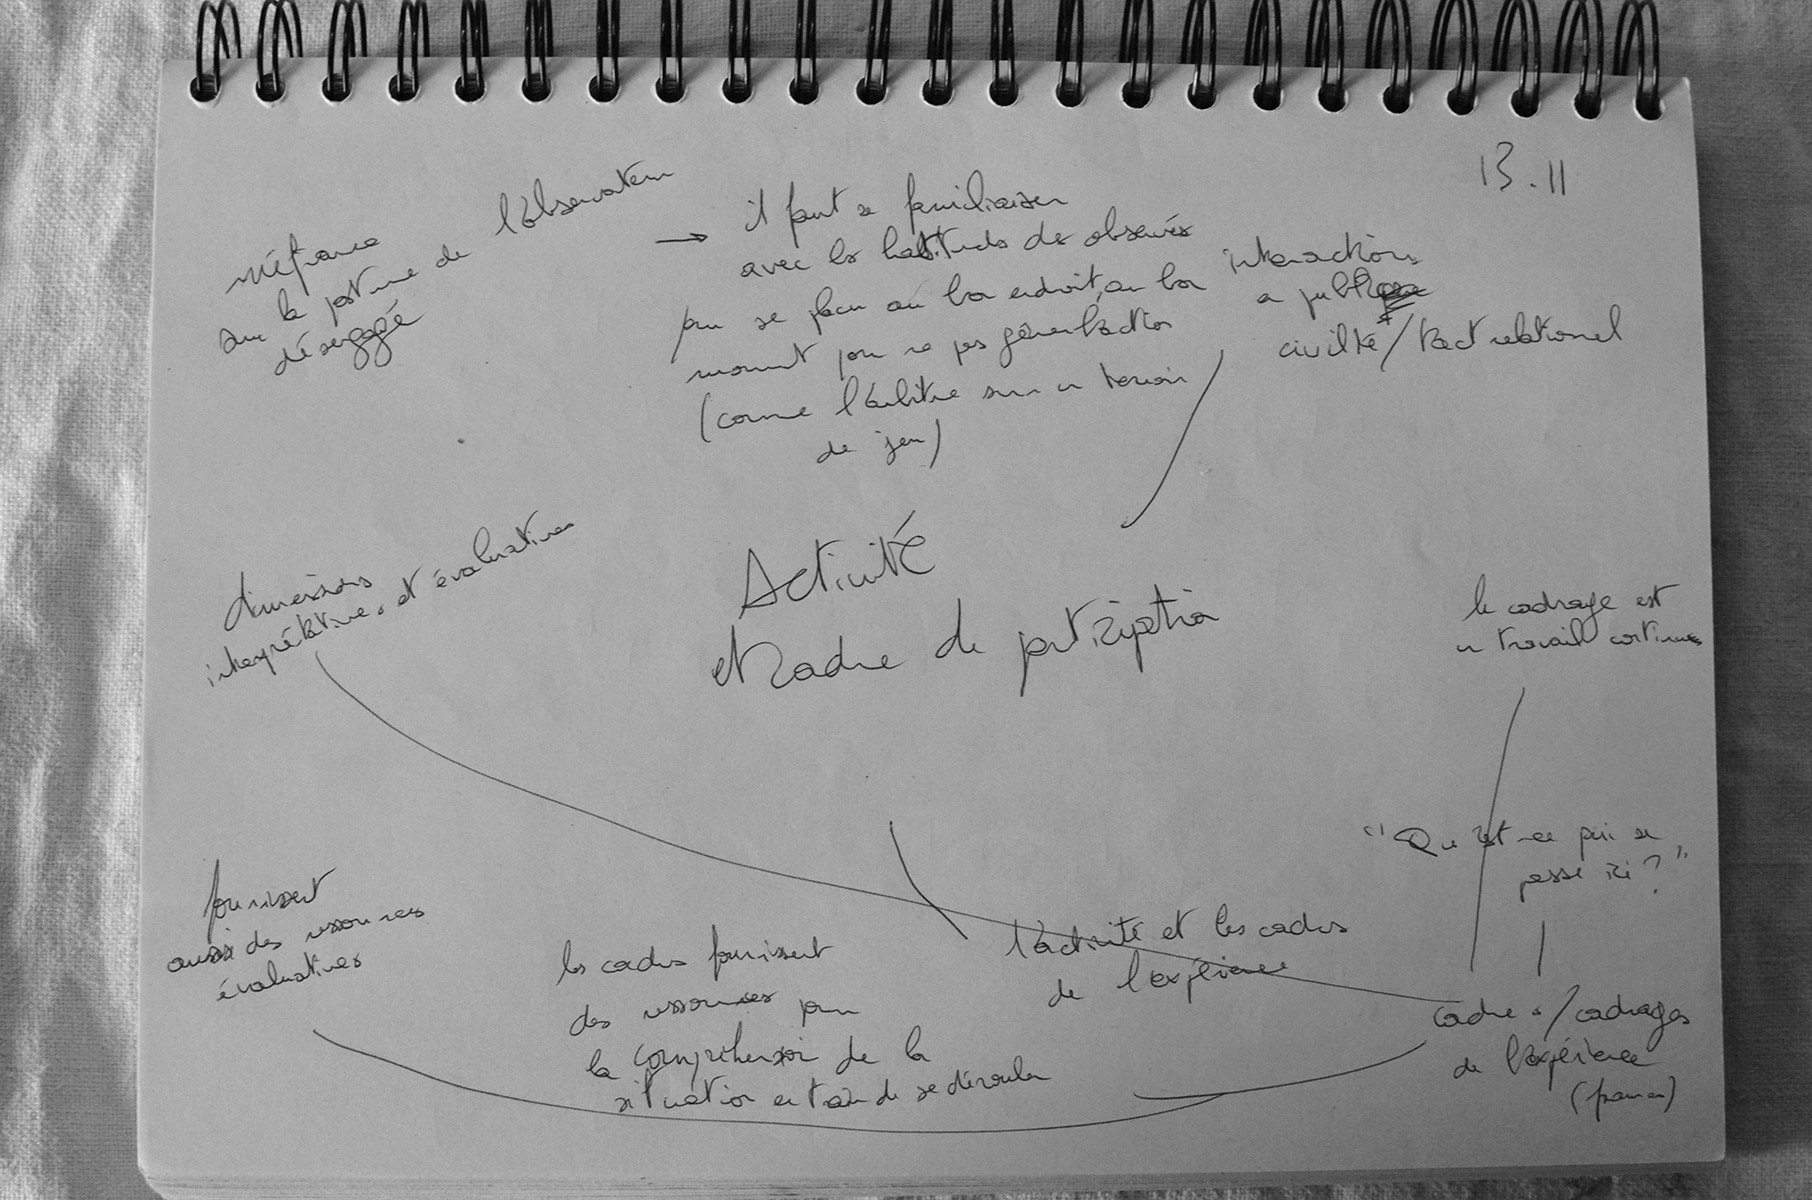 13.11
méfiance
sur la posture de l'observateur
désengagé
→ il faut se familiariser
avec les habitudes des observés
pour se placer au bon endroit, au bon
moment pour ne pas gêner l'action
(comme l'arbitre sur un terrain
de jeu)
interactions
en public
civilité / tact relationnel
Activité
et cadre de participation
dimensions
interprétatives et évaluatives
le cadrage est
un travail continu
"Qu'est-ce qui se
passe ici ?"
fournissent
aussi des ressources
évaluatives
les cadres fournissent
des ressources pour
la compréhension de la
situation en train de se dérouler
l'activité et les cadres
de l'expérience
cadres / cadrages
de l'expérience